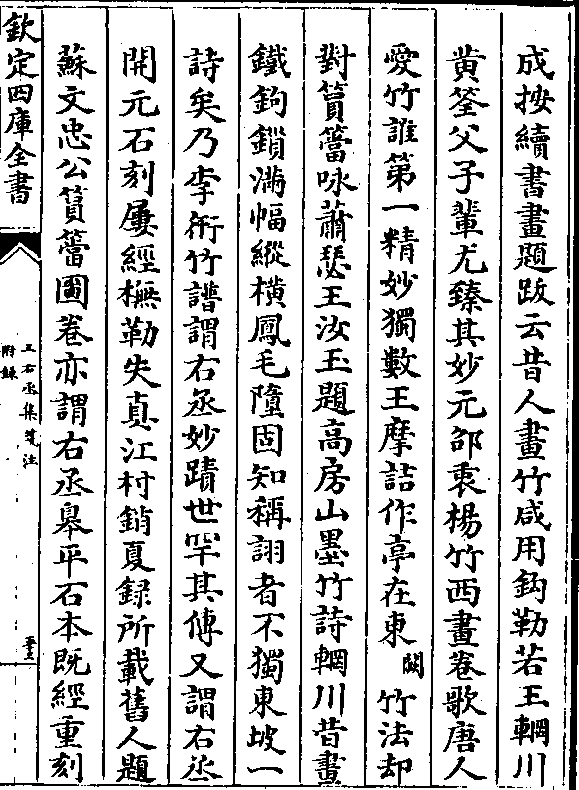 成按續書畫題跋云昔人畫竹咸用鈎勒若王輞川
黄筌父子軰尤臻其妙元邵衷楊竹西畫卷歌唐人
愛竹誰第一精妙獨數王摩詰作亭在東闕竹法却
對篔簹咏蕭瑟王汝玉題高房山墨竹詩輞川昔畫
鐵鉤鎖滿幅縱橫鳳毛墮固知稱詡者不獨東坡一
詩矣乃李衎竹譜謂右丞妙蹟世罕其傳又謂右丞
開元石刻屢經橅勒失真江村銷夏録所載舊人題
蘇文忠公篔簹圖卷亦謂右丞臯平石本既經重刻
欽定四庫全書
王右丞集箋注
附錄